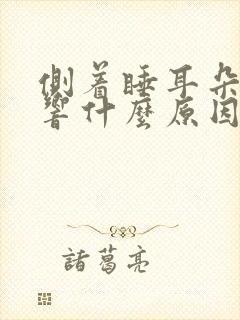 侧着睡耳朵
響什麼原因
諸葛亮